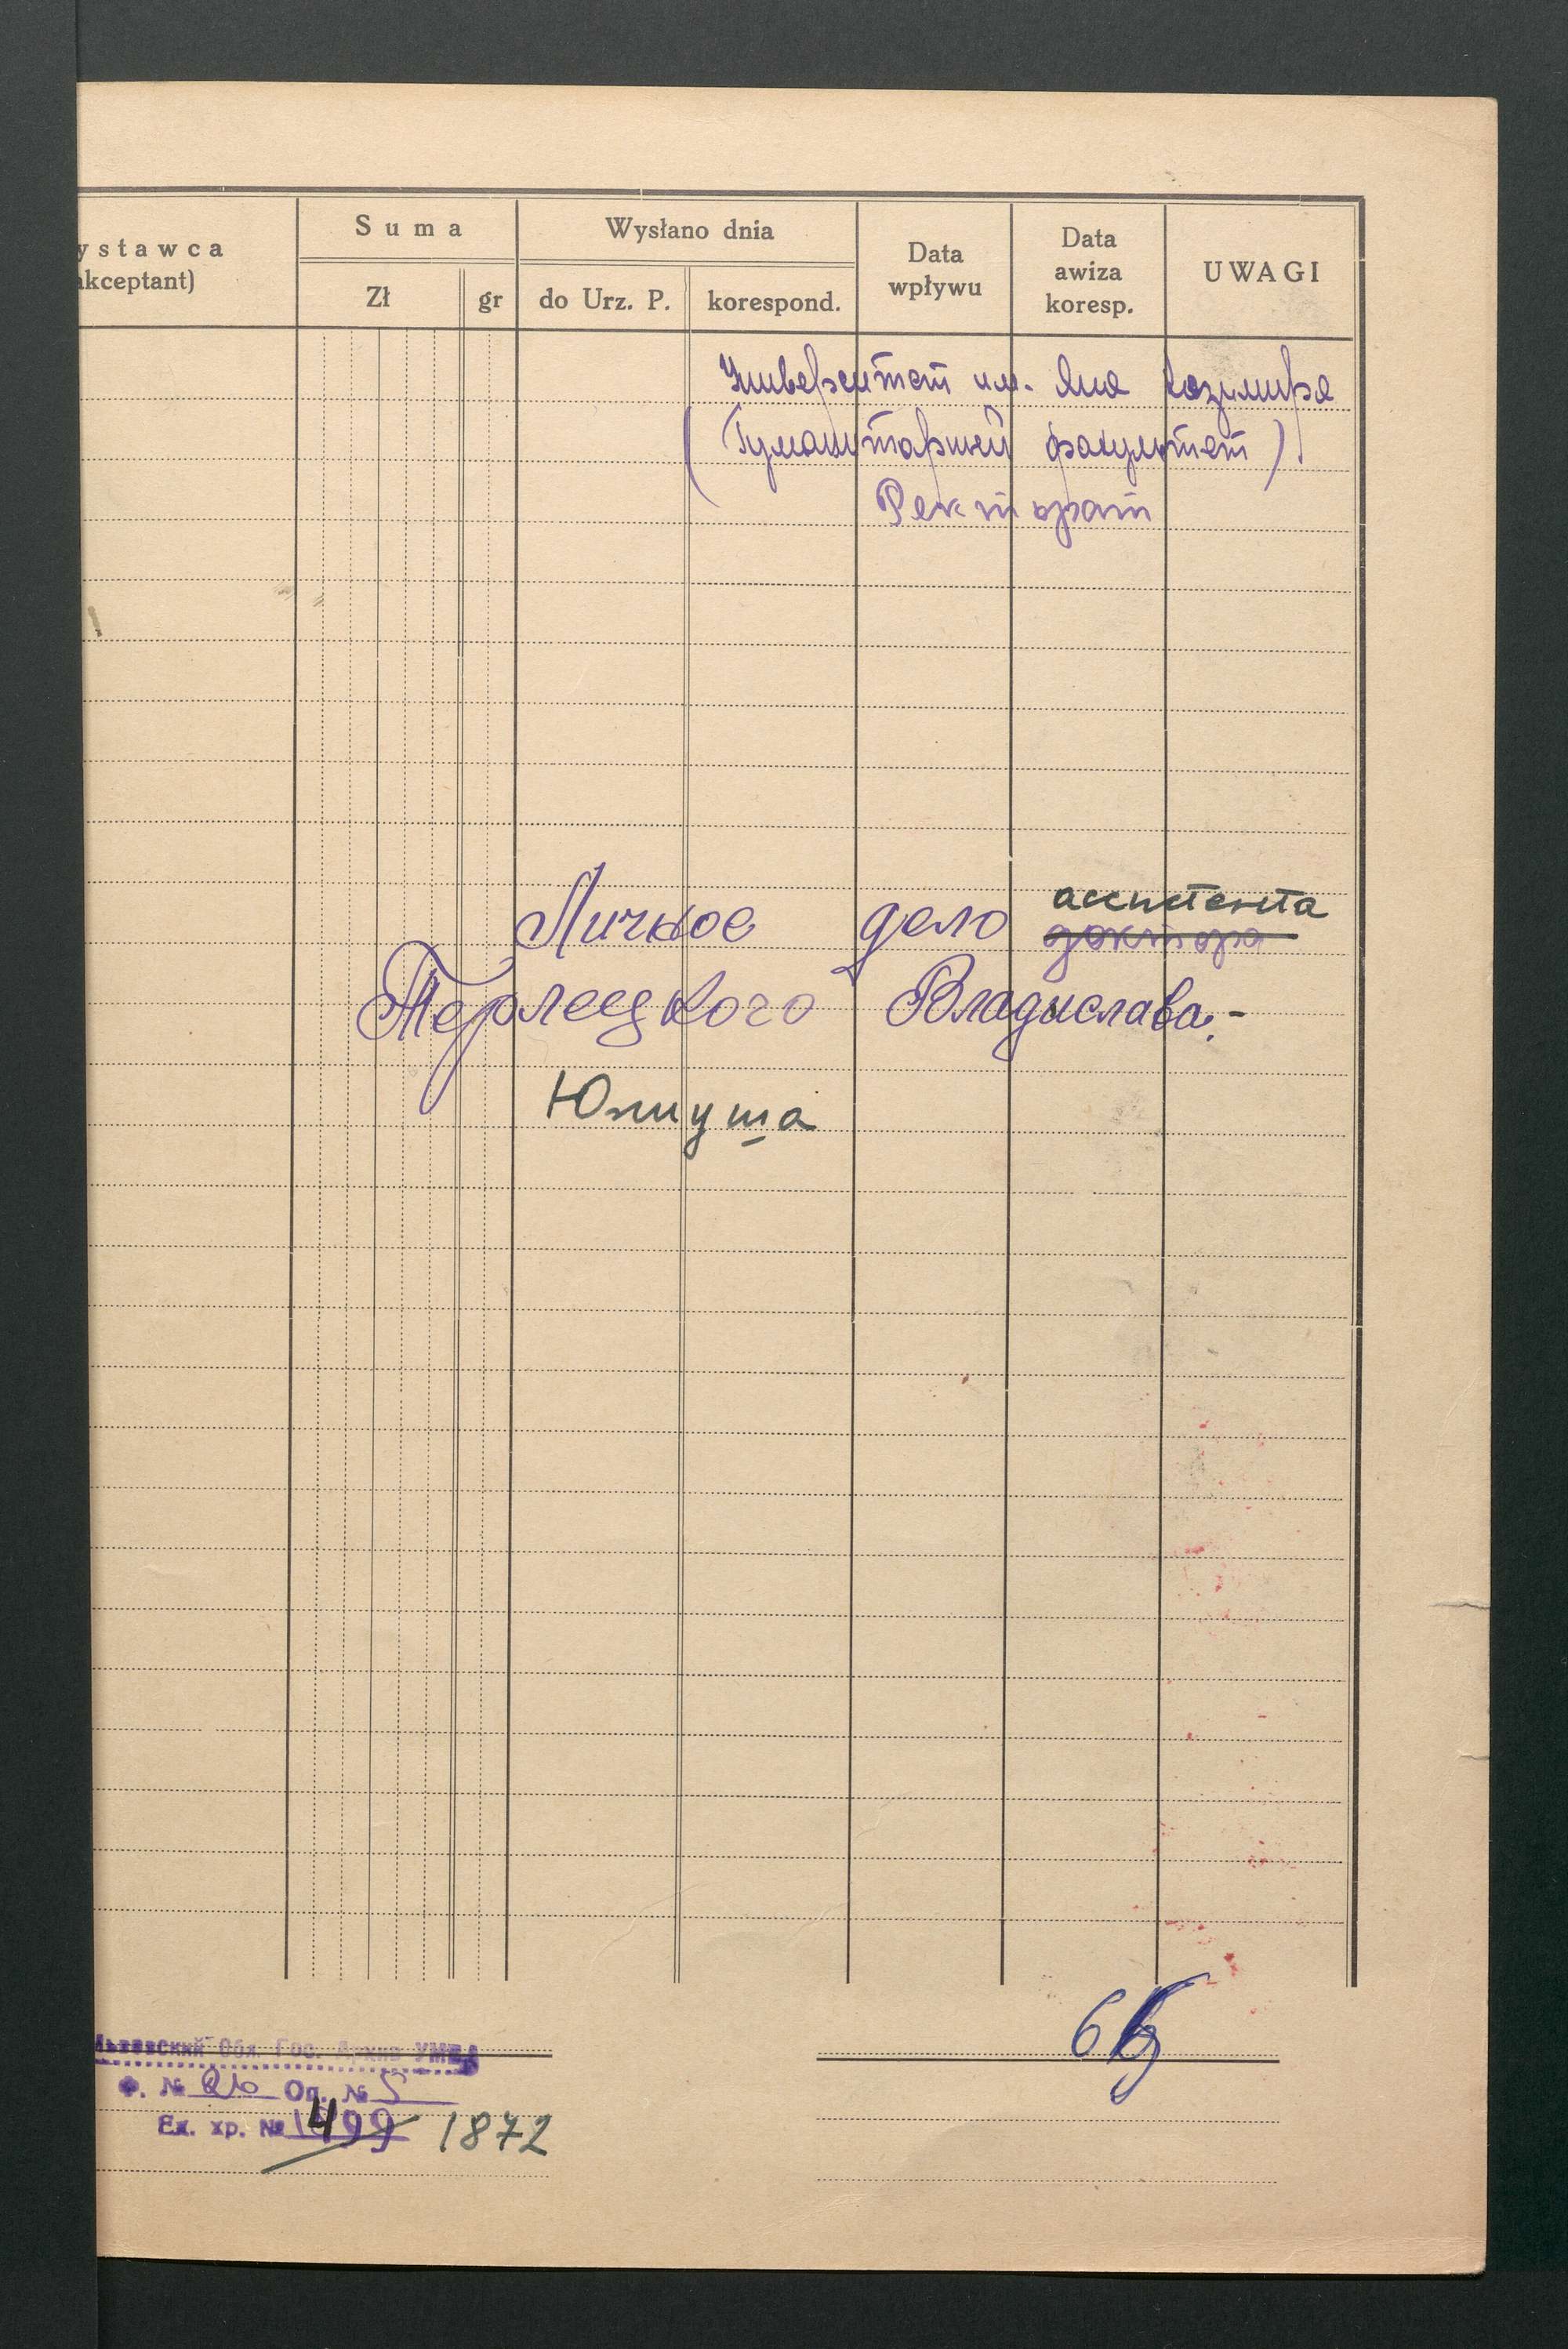 ystawca
akceptant)
Suma
Zł
gr
Wysłano dnia
do Urz. P.
korespond.
Data
wpływu
Data
awiza
koresp.
UWAGI
Университет им. Яна Казимира
(Гуманитарный факультет).
Ректорат
ассистента
Личное дело доктора
Терлецкого Владислава.-
Юлиуша
6
Львовский Обл. Гос. Архив УМВД
Ф. № 26 Оп. № 5
Ех. хр. № 1499 1872